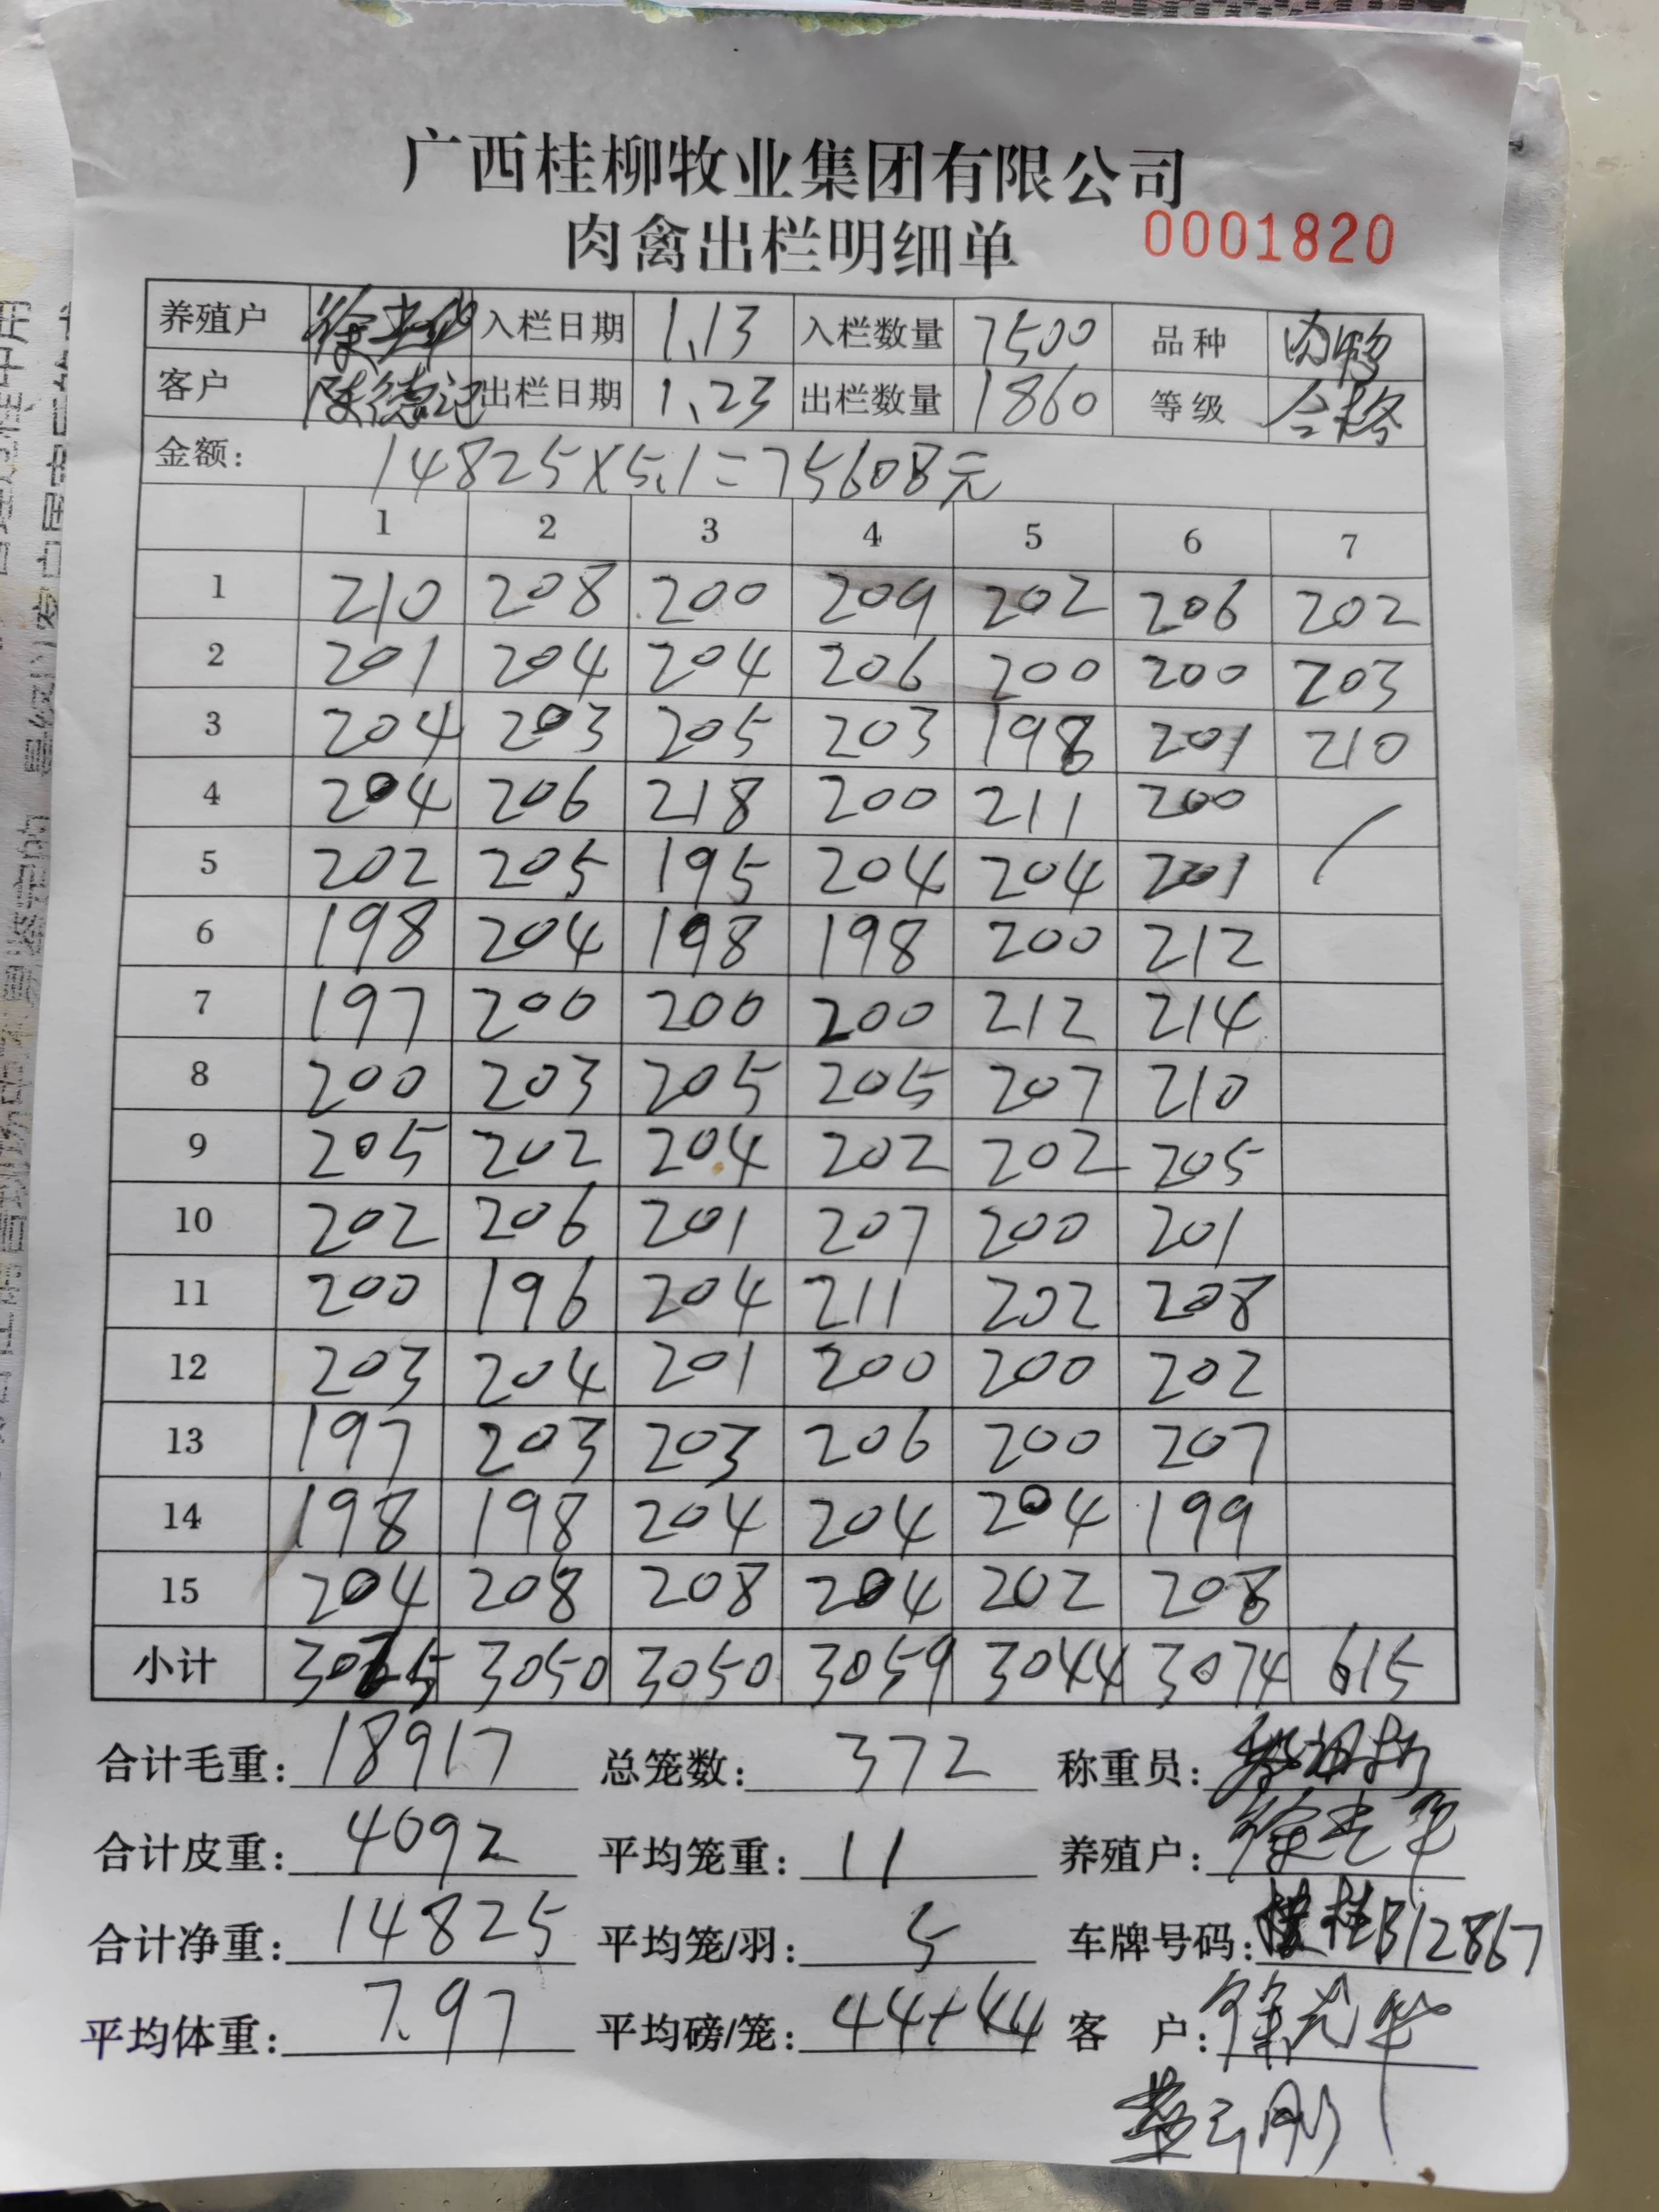 广西桂柳牧业集团有限公司
肉禽出栏明细单 0001820
养殖户 入栏日期 1.13 入栏数量 7500 品种 肉鸭
客户 陈德记 出栏日期 1.23 出栏数量 1860 等级 合格
金额: 14825×5.1=75608元
1 2 3 4 5 6 7
1 210 208 200 209 202 206 202
2 201 204 204 206 200 200 203
3 204 203 205 203 198 201 210
4 204 206 218 200 211 200 /
5 202 205 195 204 204 201
6 198 204 198 198 200 212
7 197 200 200 200 212 214
8 200 203 205 205 207 210
9 205 202 204 202 202 205
10 202 206 201 207 200 201
11 200 196 204 211 202 208
12 203 204 201 200 200 202
13 197 203 203 206 200 207
14 198 198 204 204 204 199
15 204 208 208 204 202 208
小计 3025 3050 3050 3059 3044 3074 615
合计毛重: 18917 总笼数: 372 称重员:
合计皮重: 4092 平均笼重: 11 养殖户:
合计净重: 14825 平均笼/羽: 5 车牌号码: 桂B12867
平均体重: 7.97 平均磅/笼: 44+44 客 户: